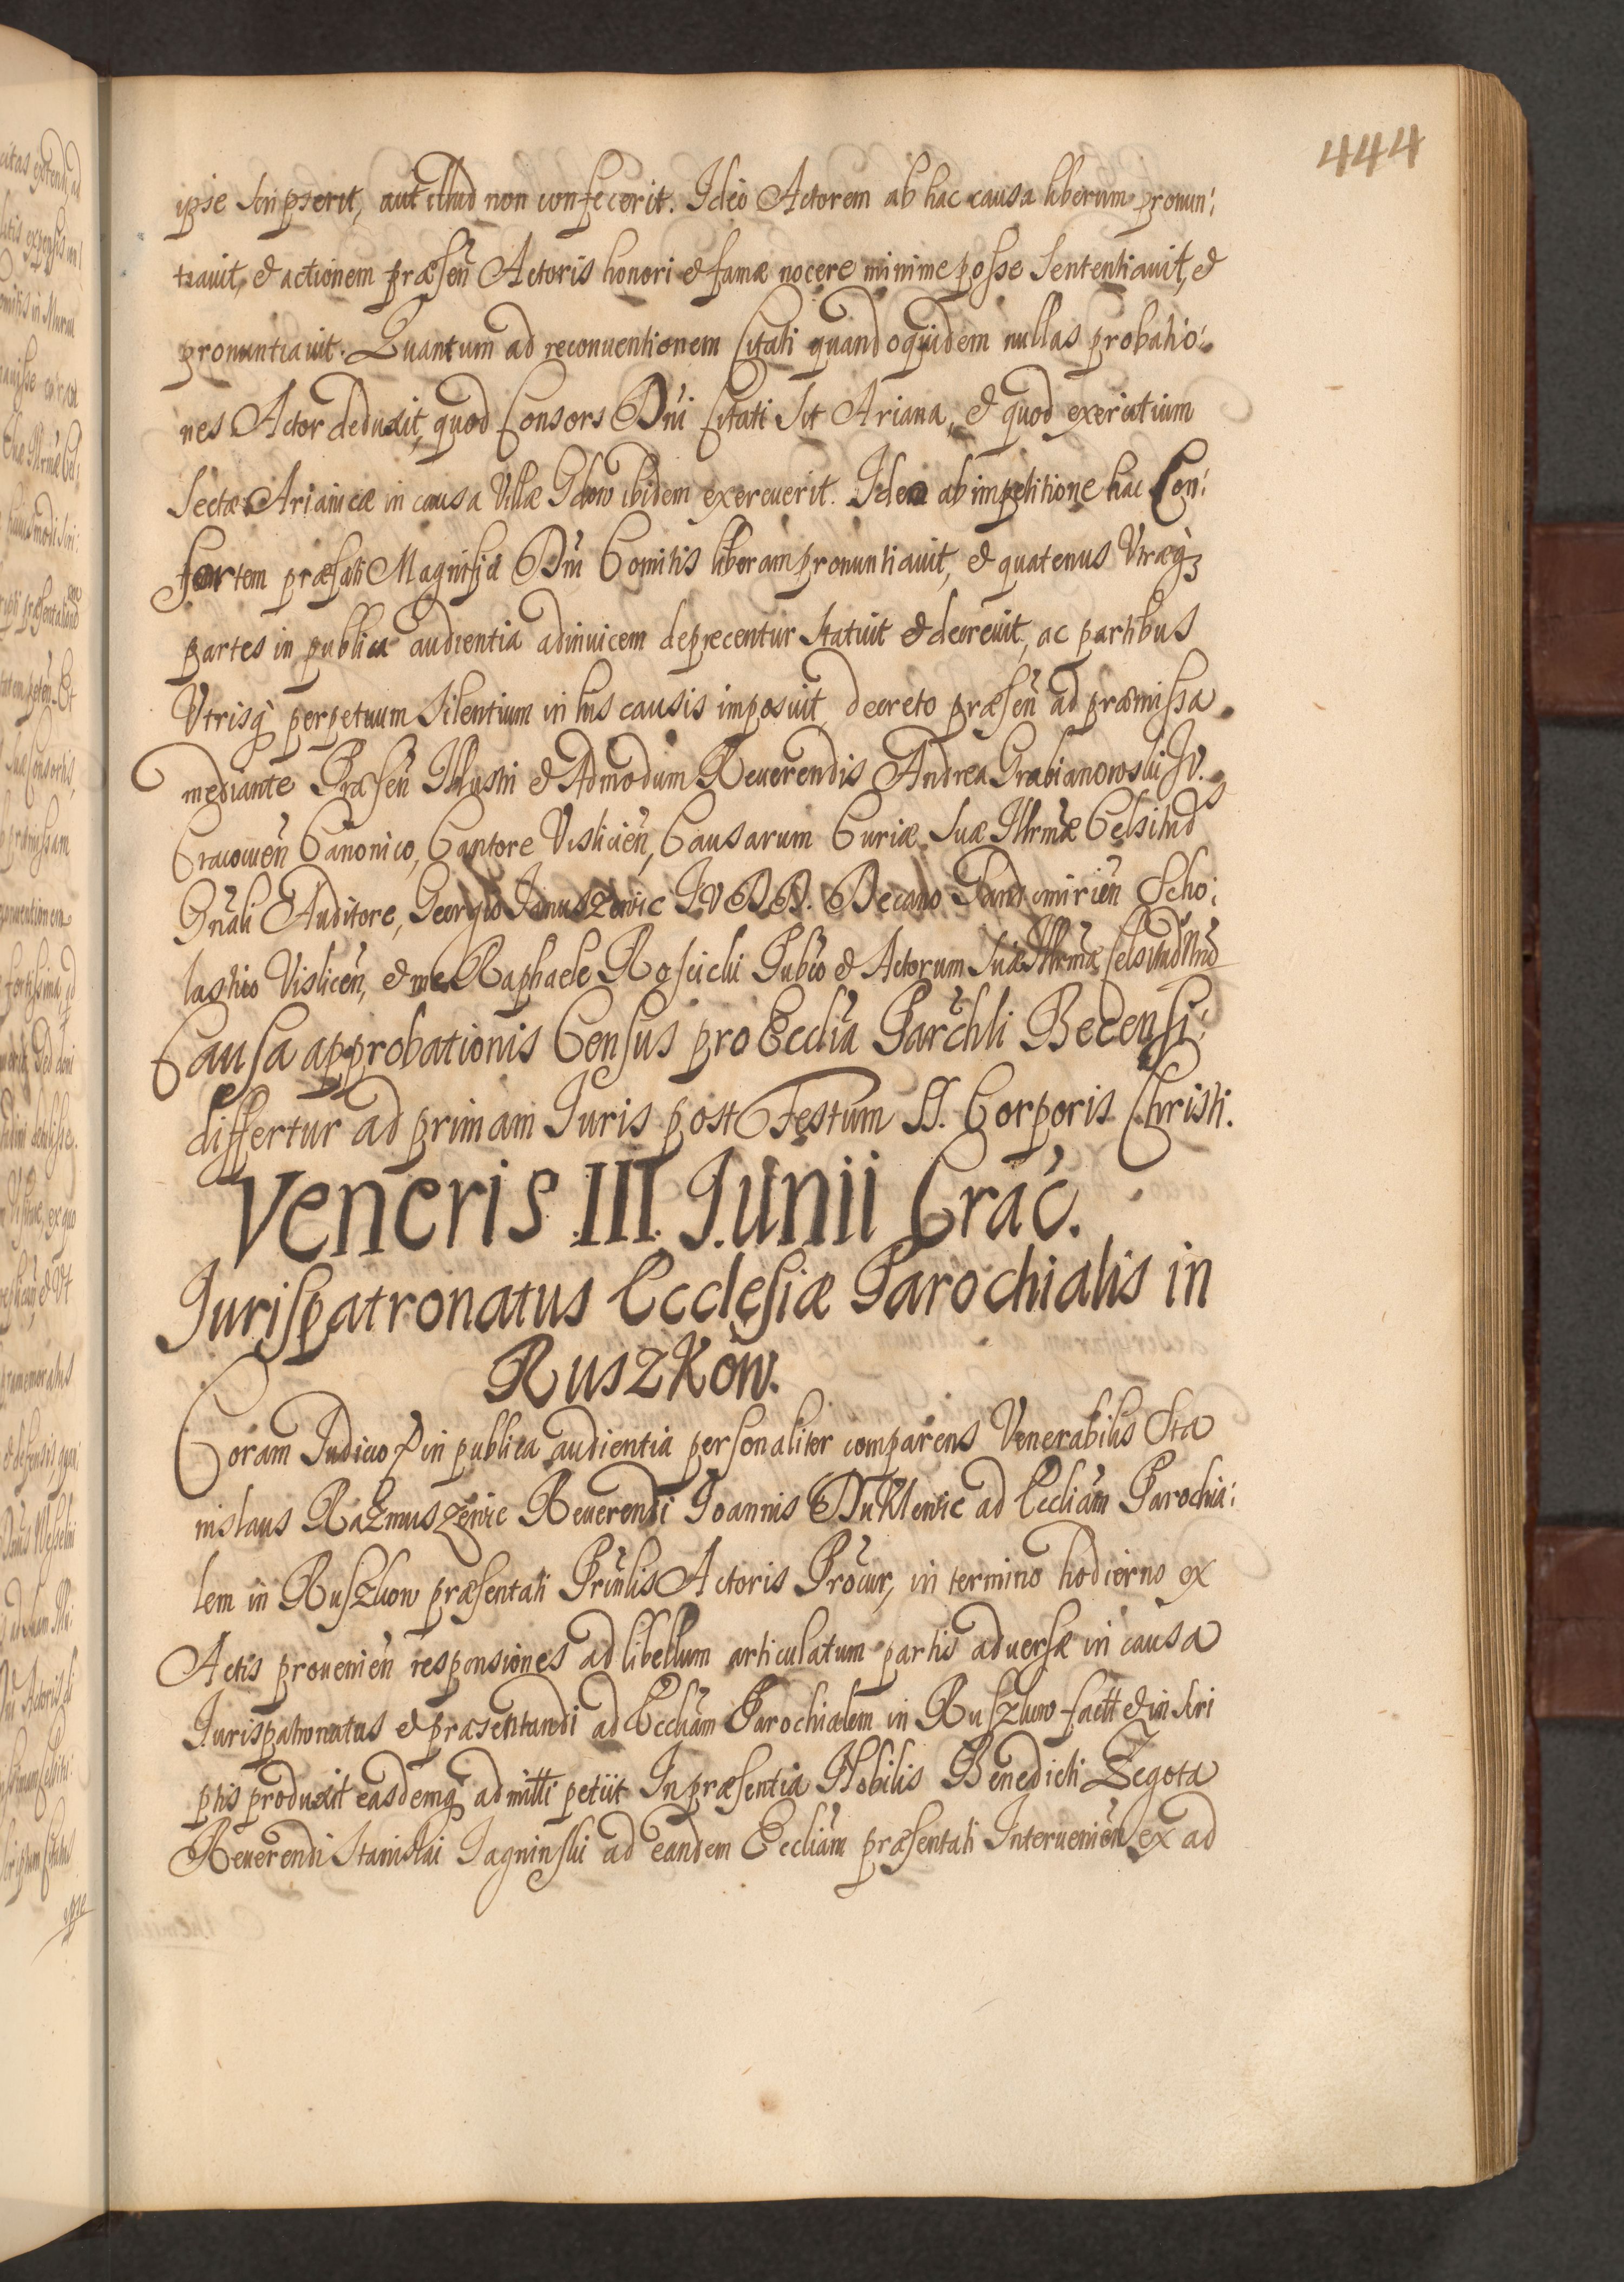 444
ipse scripserit, aut illud non confecerit. Ideo Actorem ab hac causa liberum pronun:
tiavit, et actionem præsen̄ Actoris honori et famæ nocere minime posse sententiavit, et
pronuntiavit. Quantum ad reconventionem Citati quandoquidem nullas probatio:
nes Actor deduxit, quod Consors Dn̄i Citati sit Ariana, et quod exercitium
sectæ Arianicæ in causa Villæ Gdow ibidem exercuerit. Ideo ab impetitione hac Con:
sortem præfati Magnifici Dn̄i Comitis liberam pronuntiavit, et quatenus Vtræq3
partes in publica audientia adinvicem deprecentur statuit et decrevit, ac partibus
Vtrisq̀ perpetuum silentium in his causis imposuit decreto præsen̄ ad præmissa
mediante Præsen̄ Illustri et Admodum Reverendis Andrea Grabianowski IV.
Cracovien̄ Canonico, Cantore Vislicien̄, Causarum Curiæ Suæ Illrmæ Celsitnd
Gn̄ali Auditore, Georgio Januszowic IV DD. Decano Sandomirien̄ Scho:
lastico Vislicen̄, et me Raphaele Roscicki Pub͞co et Actorum Suæ Illrmæ Celsitud Nrio
Causa approbationis Census pro Ecclia Parchli Becensi:
differtur ad primam Juris post Festum SS. Corporis Christi.
Veneris III Junii Crac.
Jurispatronatus Ecclesiæ Parochialis in
Ruszków.
Coram Judicio p in publica audientia personaliter comparens Venerabilis Sta
nislaus Razmuszewic Reverendi Joannis Duklewic ad Eccliam Parochia:
lem in Ruszkow præsentati Prin̄lis Actoris Procur, in termino hodierno ex
Actis provenien̄ responsiones ad libellum articulatum partis adversæ in causa
Jurispatronatus et præsentandi ad Eccliam Parochialem in Ruszkow factt et in scri
ptis produxit easdemq̀ admitti petiit In præsentia Nobilis Benedicti Zegota
Reverendi Stanislai Jagninski ad eandem Eccliam præsentati Intervenien̄ ex ad